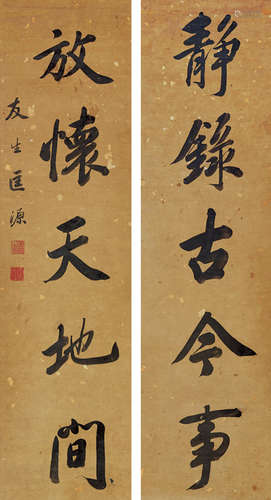 靜錄古今事
放懷天地間
友生匡源